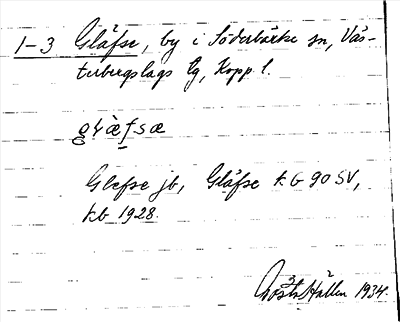 1-3 Gläfse, by i Söderbärke sn, Väs-
terbergslags tg, Kopp. l.
gɬæ̀fsæ
Glefse jb, Gläfse kb 90 SV,
kb 1928.
Gösta Hallen 1934.